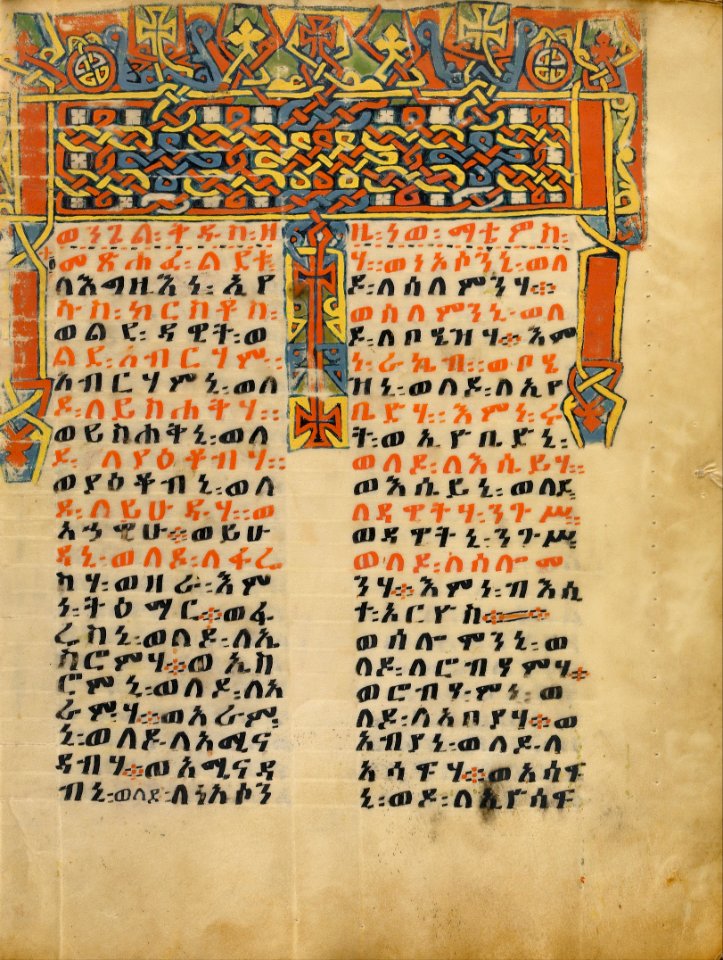 ወንጌል፡ቅዱስ፡ዘ
መጽሐፈ፡ልደቱ
ለእግዚእነ፡ኢየ
ሱስ፡ክርስቶስ፡
ወልደ፡ዳዊት፡ወ
ልደ፡አብርሃም፡
አብርሃምኒ፡ወለ
ዶ፡ለይስሐቅሃ፡፡
ወይስሐቅኒ፡ወለ
ዶ፡ለያዕቆብሃ፡፡
ወያዕቆብኒ፡ወለ
ዶ፡ለይሁዳሃ፡፡ወ
አኀዊሁ፡ወይሁ
ዳኒ፡ወለዶ፡ለፋሬ
ስሃ፡ወዘራ፡እም
ነ፡ትዕማር፡ወፋ
ሬስኒ፡ወለዶ፡ለኤ
ስሮምሃ፡ወኤስ
ሮምኒ፡ወለዶ፡ለአ
ራምሃ፡ወአራም
ኒ፡ወለዶ፡ለአሚና
ዳብሃ፡ወአሚናዳ
ብኒ፡ወለደ፡ለነአሶን
ዜ፡ነወ፡ማቴዎስ፡
ሃ፡፡ወነአሶንኒ፡ወለ
ዶ፡ለሰለሞንሃ፡
ወሰለሞንኒ፡ወለ
ዶ፡ለቦሄዝሃ፡እም
ነ፡ራኬብ፡፡ወቦሄ
ዝኒ፡ወለዶ፡ለኢዮ
ቤድሃ፡፡እምነ፡ሩ
ት፡ወኢዮቤድኒ፡
ወለዶ፡ለእሴይሃ፡፡
ወእሴይኒ፡ወለደ
ለዳዊትሃ፡ንጉሥ
ወዳዊትኒ፡ንጉሥ
ወለዶ፡ለሰሎሞ
ንሃ፡እምነ፡ብእሲ
ተ፡ኦርዮስ
ወሰሎሞንኒ፡ወ
ለዶ፡ለሮብዓምሃ፡
ወሮብዓምኒ፡ወ
ለዶ፡ለአቦያሃ፡ወ
አብያኒ፡ወለዶ፡ለ
አሳፍሃ፡ወአሳፍ
ኒ፡ወዶ፡ለኢዮሳፍ